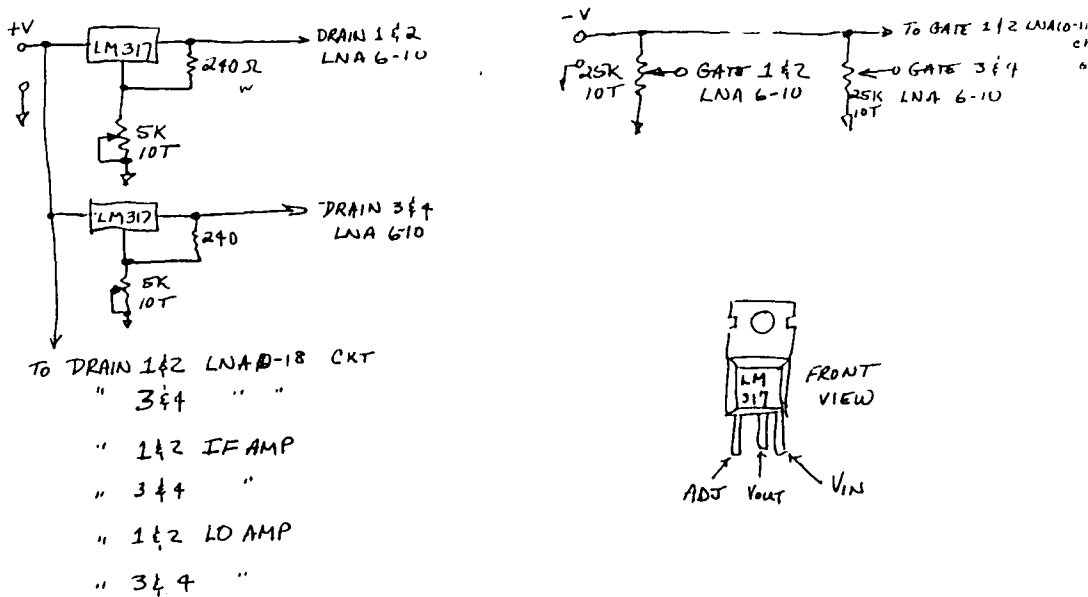 +V
LM317
240Ω
DRAIN 1&2
LNA 6-10
5K
10T
LM317
240
DRAIN 3&4
LNA 6-10
5K
10T
TO DRAIN 1&2 LNA 10-18 CKT
" 3&4 " "
" 1&2 IF AMP
" 3&4 "
" 1&2 LO AMP
" 3&4 "
-V
TO GATE 1&2 LNA 10-1
25K
10T
GATE 1&2
LNA 6-10
GATE 3&4
LNA 6-10
25K
10T
LM
317
FRONT
VIEW
ADJ VOUT VIN